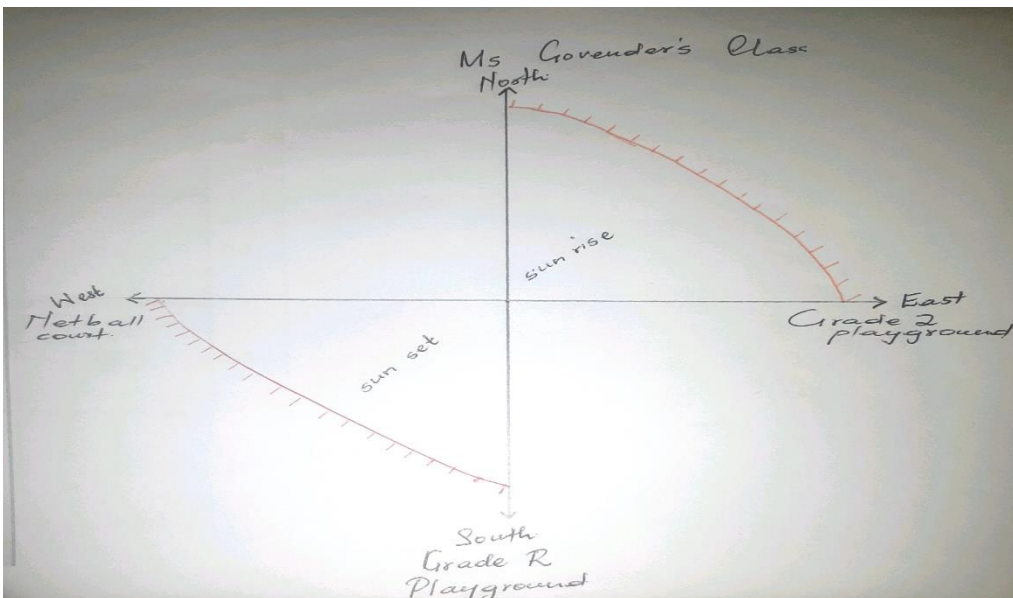 Ms Govender's Class
North
sun rise
West
Netball
court.
East
Grade 2
playground
sun set
South
Grade R
Playground